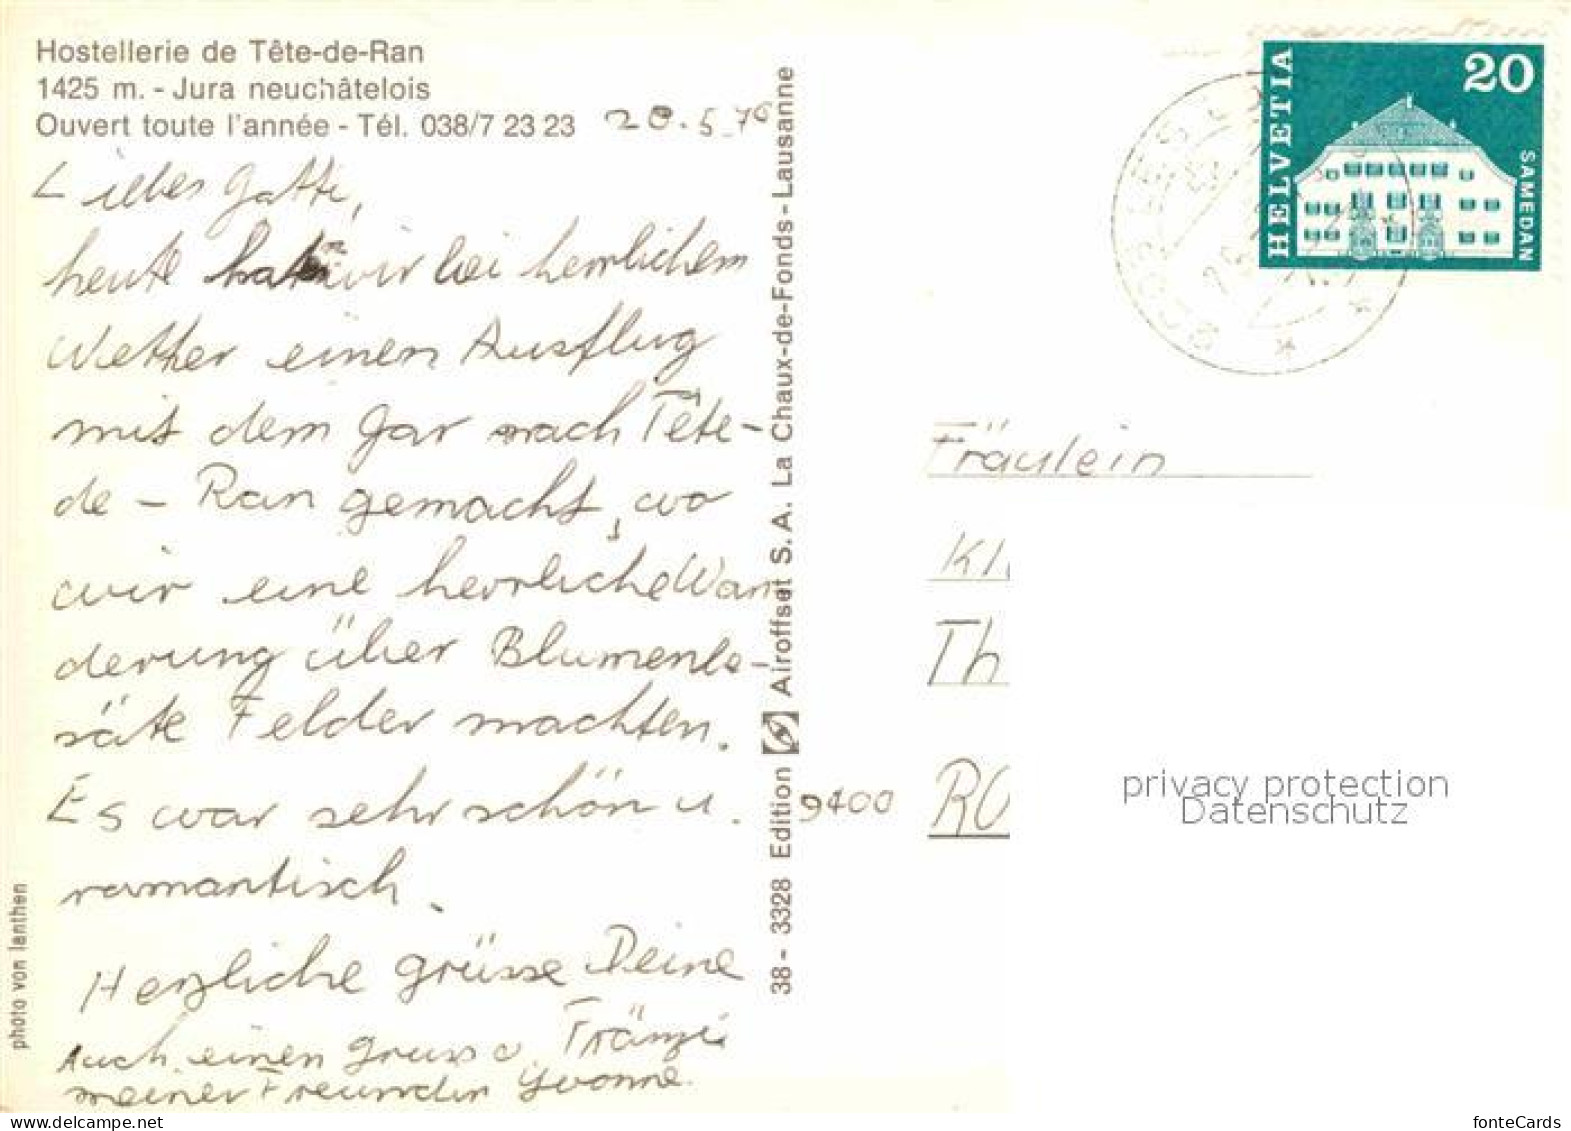 Hostellerie de Tête-de-Ran
1425 m. - Jura neuchâtelois
Ouvert toute l'année - Tél. 038/7 23 23
20.5.70
Liebes Gotti,
heute haben wir bei herrlichem
Wetter einen Ausflug
mit dem Gar nach Tête-
de-Ran gemacht, wo
wir eine herrliche Wan
derung über Blumenbe-
säte Felder machten.
Es war sehr schön u.
romantisch.
Herzliche grüsse Deine
Fränzi
Auch einen Gruss v.
meiner Freundin Yvonne.
photo von lanthen
38 - 3328 Edition Airoffset S.A. La Chaux-de-Fonds - Lausanne
HELVETIA
20
SAMEDAN
Fräulein
Kl
Th
9400 RO
privacy protection
Datenschutz
www.delcampe.net
fonteCards